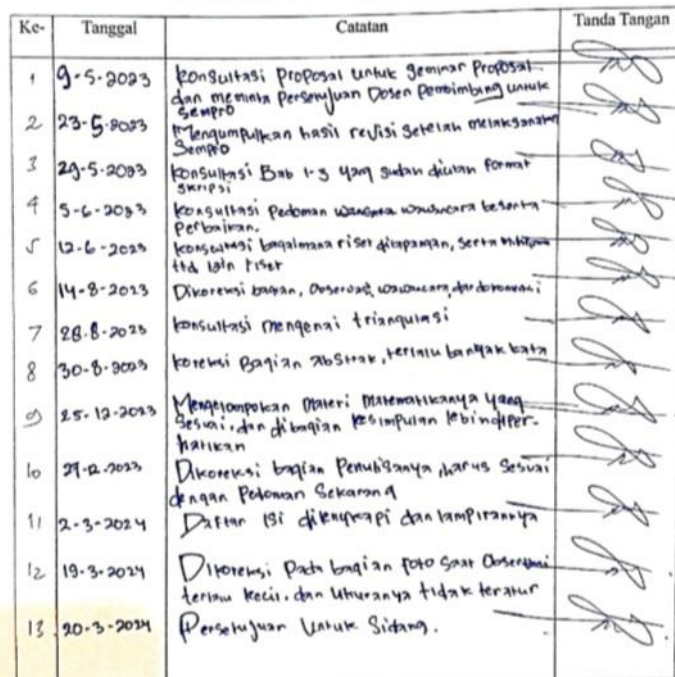 Ke- Tanggal Catatan Tanda Tangan
1 9-5-2023 Konsultasi Proposal untuk Seminar Proposal
dan meminta Persetujuan Dosen Pembimbing untuk
Sempro
2 23-5-2023 Mengumpulkan hasil revisi setelah melaksanakan
Sempro
3 29-5-2023 Konsultasi Bab 1-3 yang sudah diubah format
skripsi
4 5-6-2023 Konsultasi Pedoman wawancara beserta
Perbaikan.
5 12-6-2023 Konsultasi bagaimana riset dilapangan, serta
ttd izin riset
6 14-8-2023 Dikoreksi bagian, Observasi, wawancara, dan dokumentasi
7 28.8-2023 Konsultasi mengenai triangulasi
8 30-8-2023 Koreksi Bagian abstrak, terlalu banyak kata
9 25-12-2023 Mengelompokan Materi Matematikanya yang
Sesuai, dan dibagian kesimpulan lebih diper-
hatikan
10 27-12-2023 Dikoreksi bagian Penulisanya, harus Sesuai
dengan Pedoman Sekarang
11 2-3-2024 Daftar isi dilengkapi dan lampirannya
12 19-3-2024 Dikoreksi Pada bagian foto Saat Observasi
terlalu kecil, dan Ukuranya tidak teratur
13 20-3-2024 Persetujuan Untuk Sidang.